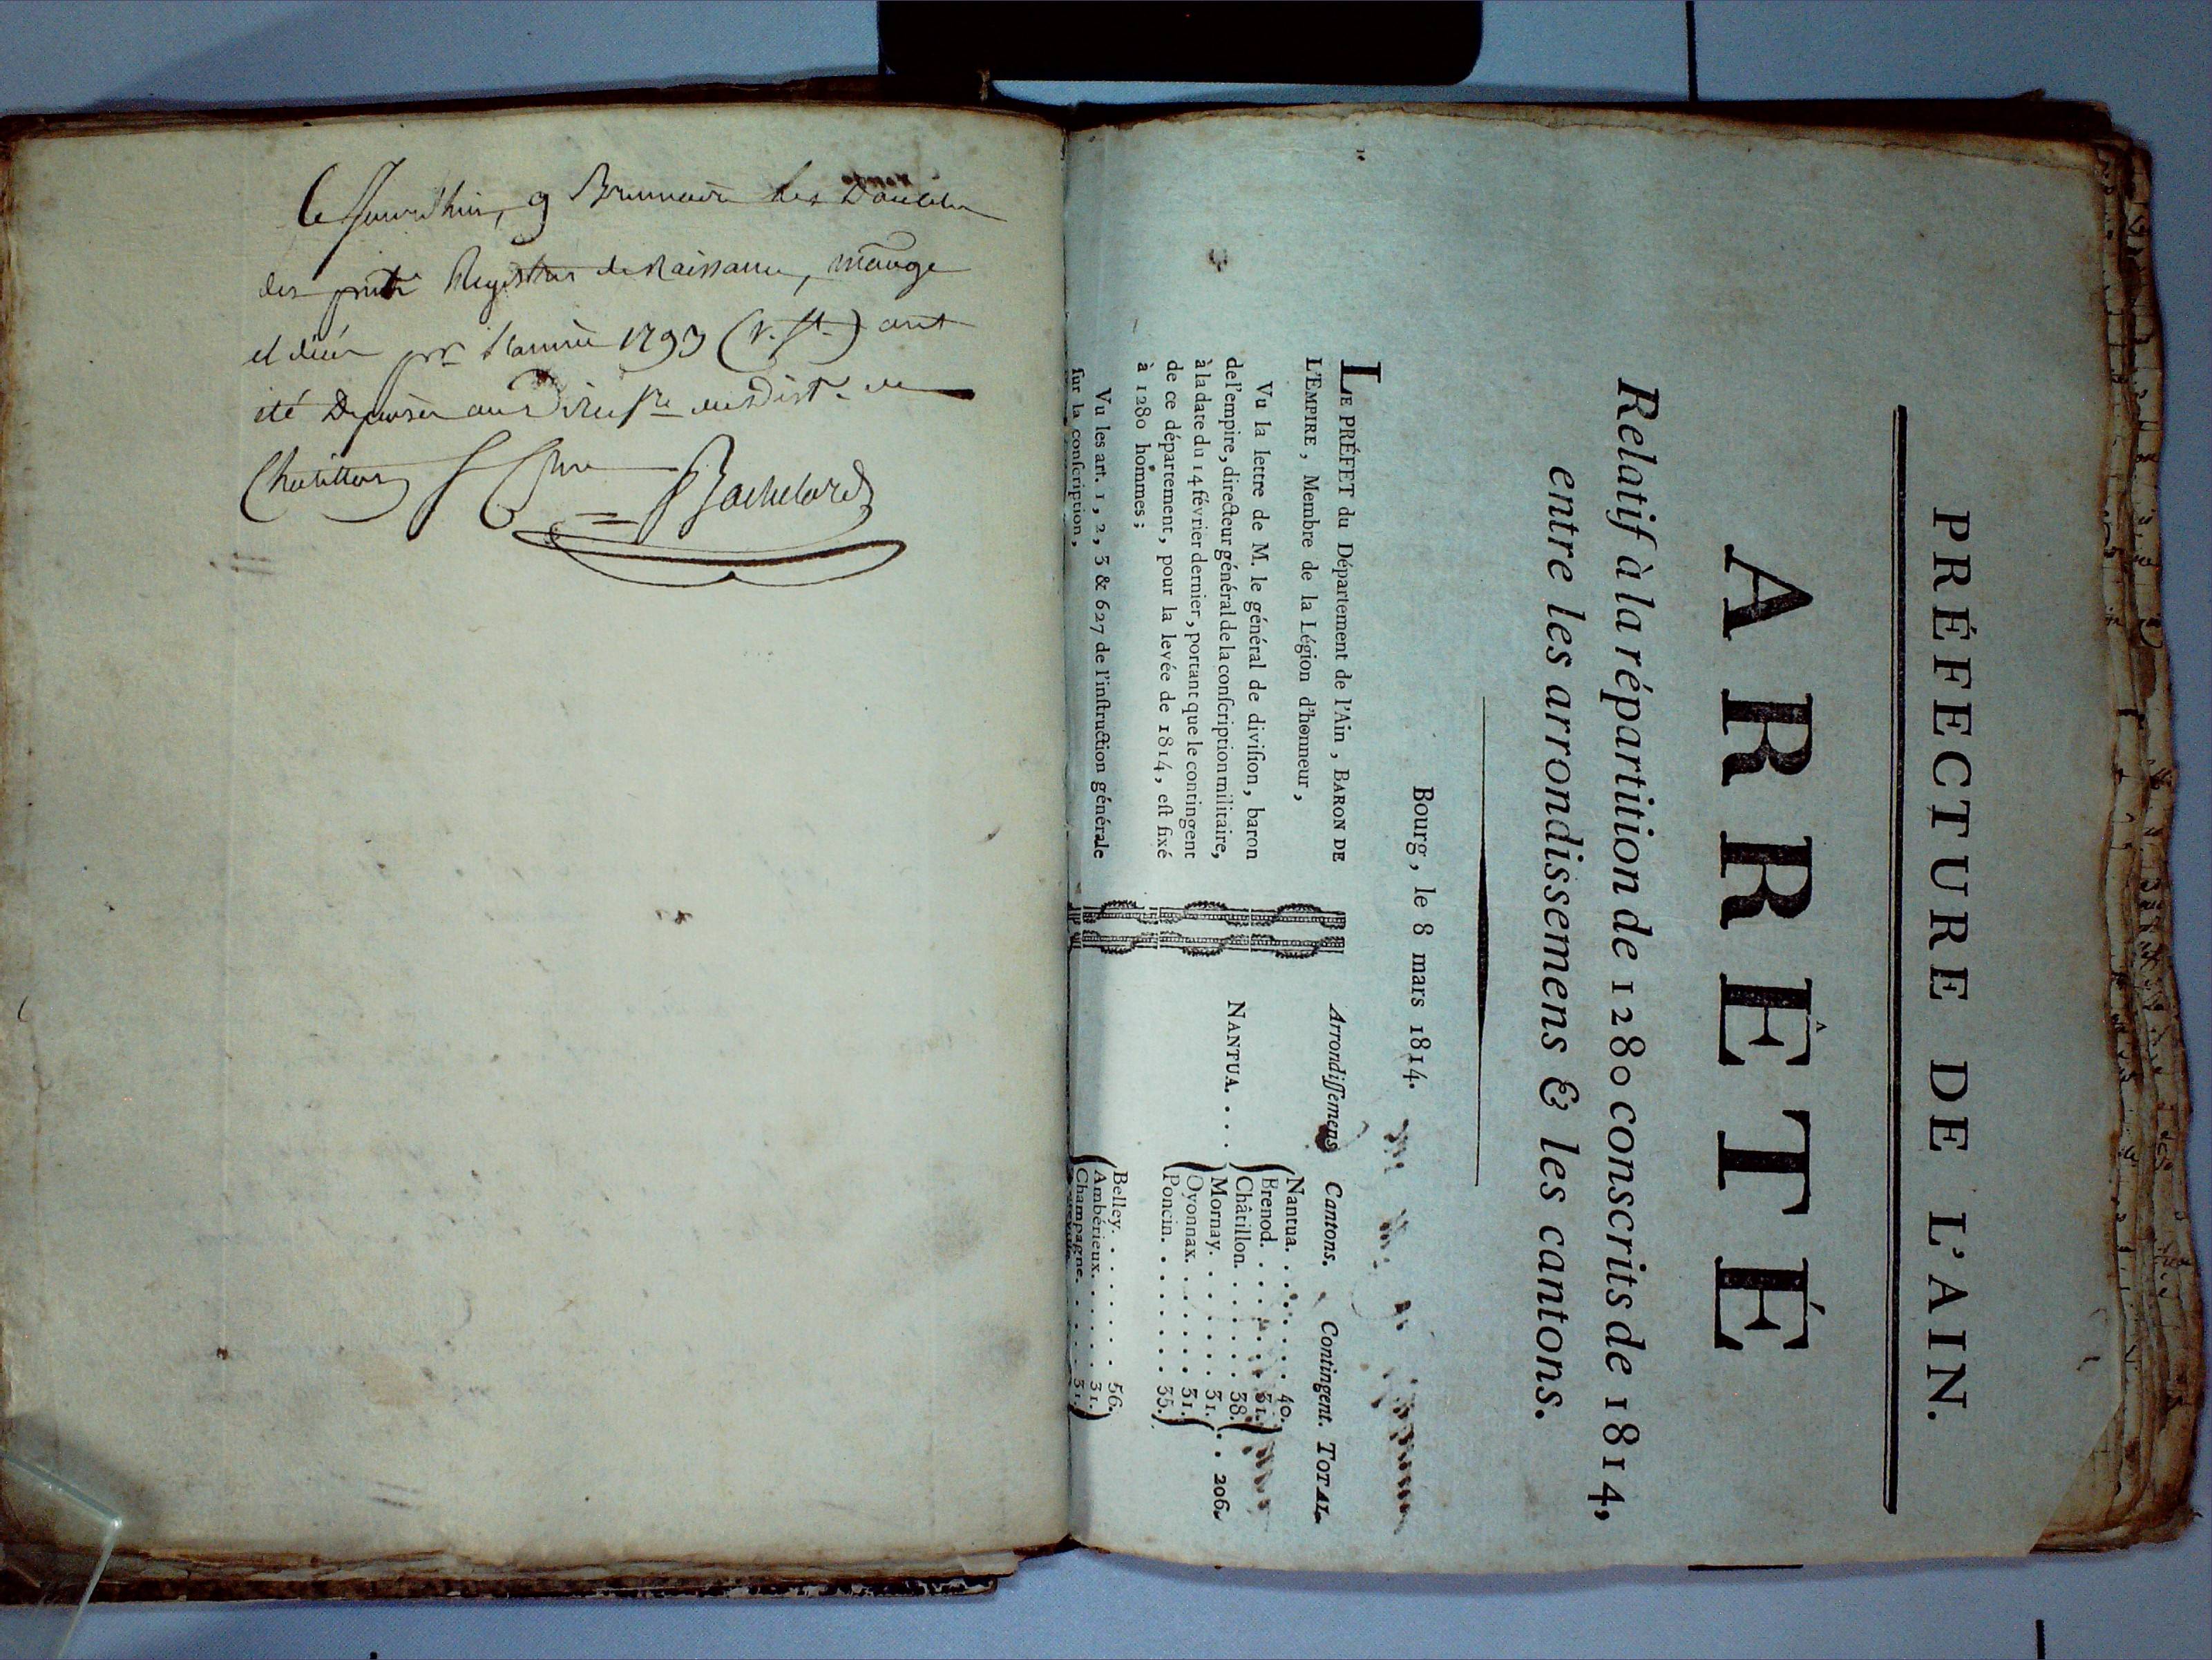 Ce Jourd'hui, 9 Brumaire les Doubles
des Registres de Naissance, mariage
et décès pr l'année 1793 (v. st.) ont
été Deposés au Direct.re du Dist. de
Chatillon Bachelard
PRÉFECTURE DE L'AIN.
ARRÊTÉ
Relatif à la répartition de 1280 conscrits de 1814,
entre les arrondissemens & les cantons.
Bourg, le 8 mars 1814.
LE PRÉFET du Département de l'Ain, BARON DE
L'EMPIRE, Membre de la Légion d'honneur,
Vu la lettre de M. le général de diviſion, baron
de l'empire, directeur général de la conſcription militaire,
à la date du 14 février dernier, portant que le contingent
de ce département, pour la levée de 1814, eſt fixé
à 1280 hommes;
Vu les art. 1, 2, 3 & 627 de l'inſtruction générale
ſur la conſcription,
Arrondiſſemens Cantons. Contingent. TOTAL.
Nantua. . . . . . . . 40.
Brenod. . . . . . . . 31.
NANTUA. . . . Châtillon. . . . . . . 38. . . 206.
Mornay. . . . . . . . 31.
Oyonnax. . . . . . . 31.
Poncin. . . . . . . . 35.
Belley. . . . . . . . 56.
Ambérieux. . . . . . 31.
Champagne. . . . . 31.